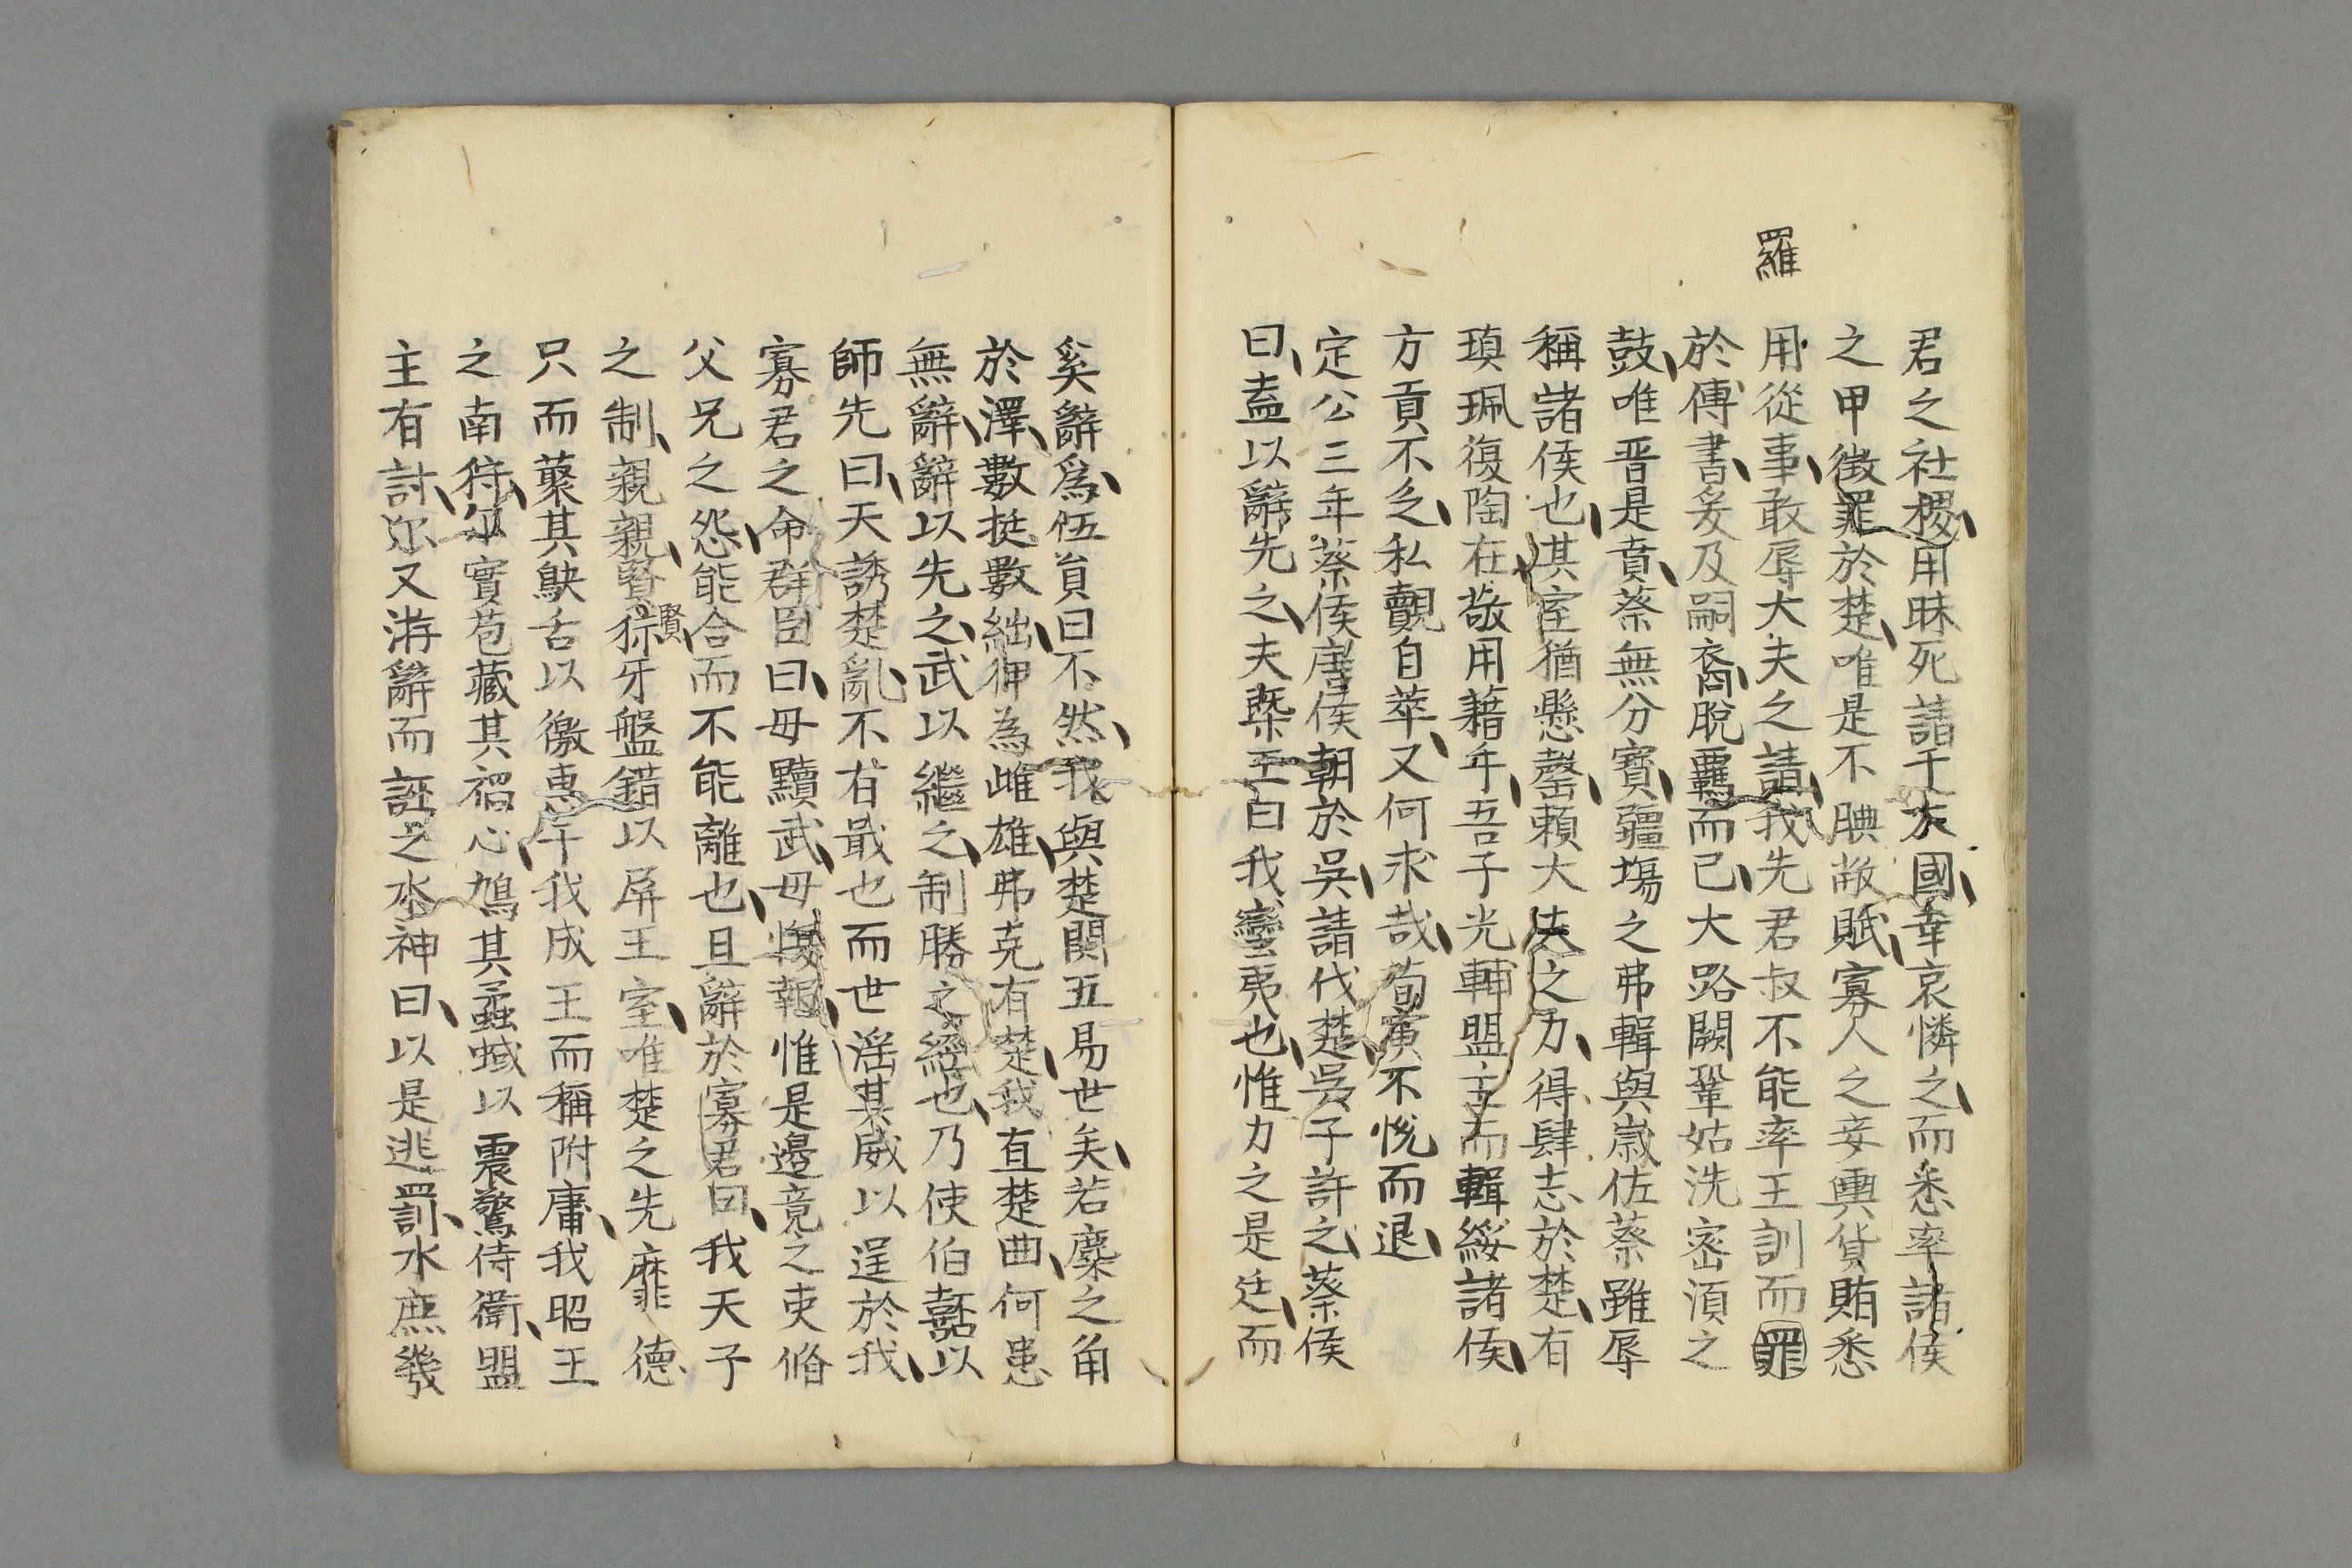 羅
君之社稷用昧死請于大國幸哀憐之而悉率諸侯
之甲徵罪於楚唯是不腆敝賦寡人之妾輿貨賄悉
用從事敢辱大夫之請我先君叔不能率王訓而罪
於傳書爰及嗣裔脫羈而已大路闕鞏姑洗密湏之
鼓唯晋是賁蔡無分寶疆埸之弗輯與嵗佐蔡雖辱
稱諸侯也其室猶懸罄賴大夫之力得肆志於楚有
項珮復陶在敬用藉手吾子光輔盟主而輯綏諸侯
方貢不乏私覿自萃又何求哉荀寅不悅而退
定公三年蔡侯唐侯朝於吳請伐楚吳子許之蔡侯
曰盍以辭先之夫槩王曰我蠻夷也惟力之是迋而
奚辭爲伍貟曰不然我與楚鬪五易世矣若麋之角
於澤數挺數絀狎為雌雄弗克有楚我直楚曲何患
無辭辭以先之武以繼之制勝之經也乃使伯嚭以
師先曰天誘楚亂不有戢也而世淫其威以逞於我
寡君之命群臣曰毋黷武毋惏報惟是邊竟之吏脩
父兄之怨能合而不能離也且辭於寡君曰我天子
之制親親賢賢猕牙盤錯以屏王室唯楚之先靡德
只而藂其鴃舌以徼惠于我成王而稱附庸我昭王
之南狩尔實苞藏其禍心鳩其蝨蜮以震驚侍衛盟
主有討尔又游辭而誣之水神曰以是逃罰水庶幾